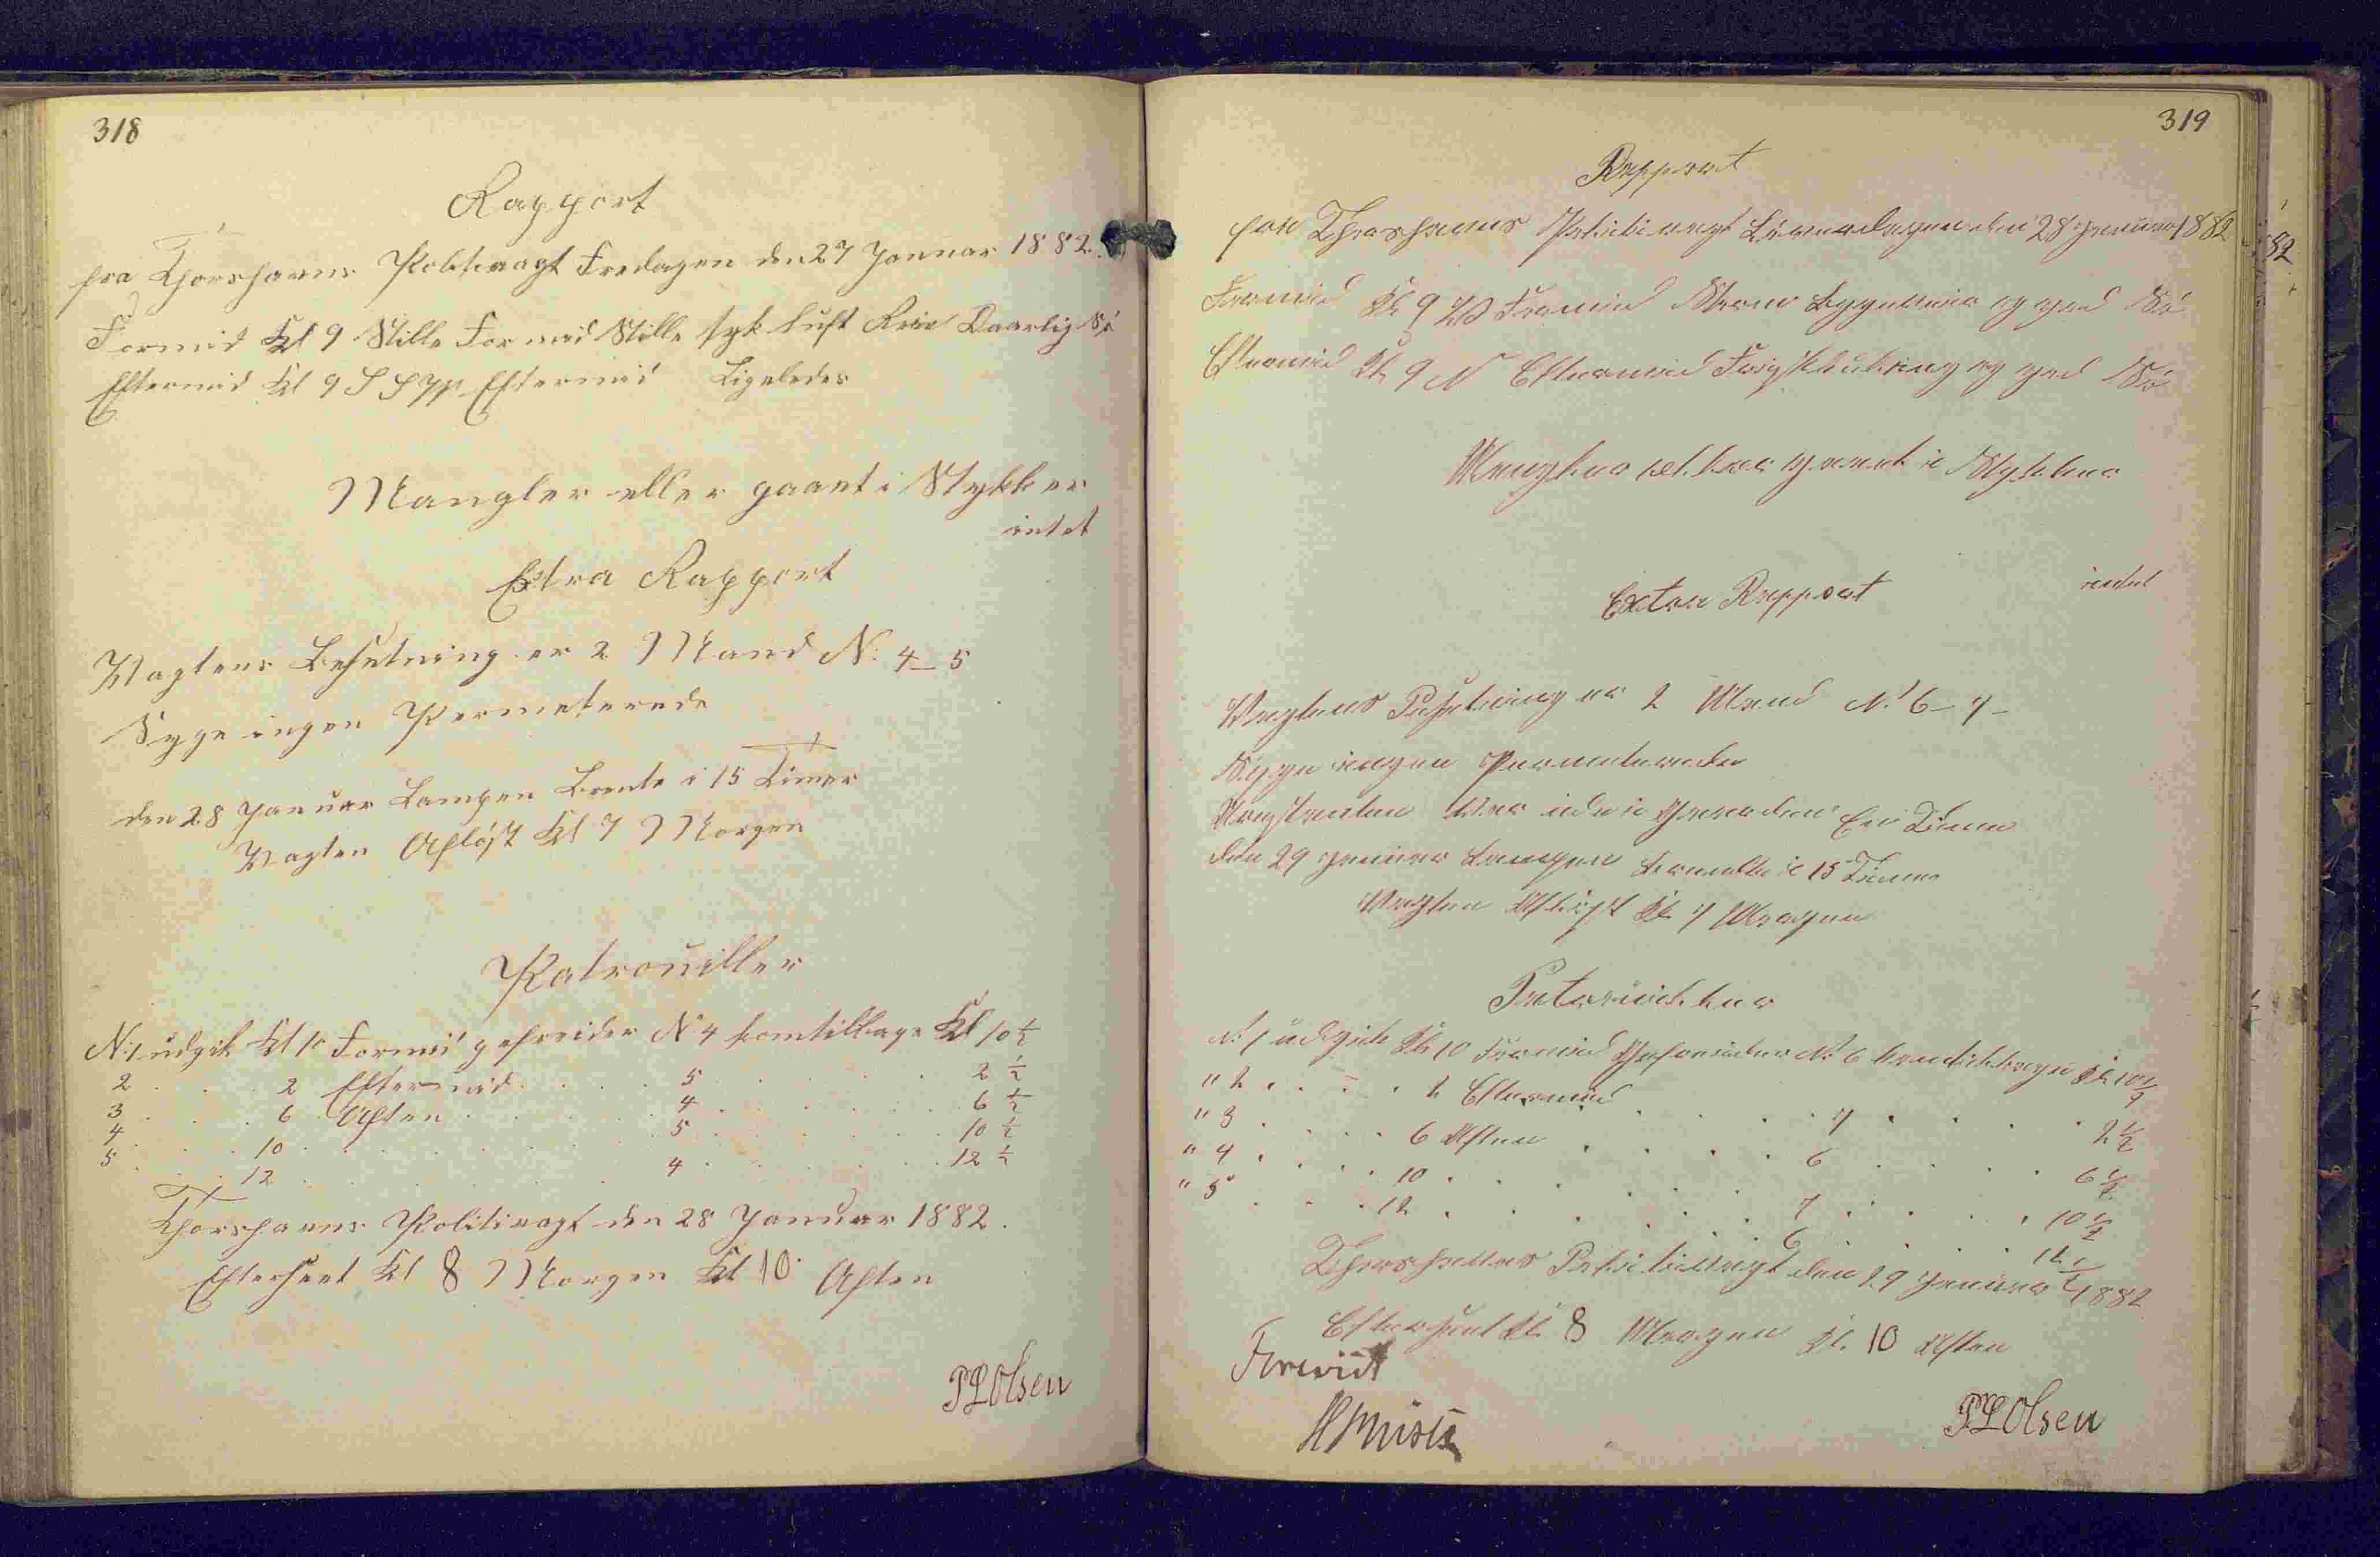 318
Rapport
fra Thorshavns Politivagt Fredagen den 27 Januar 1882.
Formid Kl 9 Stille Formid Stille tyk luft Daarlig Sö
Eftermid Kl 9 Eftermid Ligeledes
Mangler eller gaaet i Stykker
intet
Extra Rapport
Vagtens Besetning er 2 Mand N: 4-5
Syge ingen Permeterede
den 28 Januar Lampen Brente i 15 Timer
Vagten Aflöst Kl 7 Morgen
Patrouiller
N: 1 udgik Kl 10 Formid gefreider N 4 kom tilbage Kl 10 1/2
2 . . . 2 Eftermid . . . 5 . . . 2 1/2
3 . . . 6 Aften . . . 4 . . . 6 1/2
4 . . . 10 . . . 5 . . . 10 1/2
5 . . . 12 . . . 4 . . . 12 1/2
Thorshavns Politivagt den 28 Januar 1882.
Efterseet Kl 8 Morgen Kl 10 Aften
PLOlsen
319
Rapport
fra Thorshavns Politivagt Löverdagen den 28 Januar 1882
Formid Kl 9 Formid og god Sö
Eftermid Kl 9 N Eftermid Frisk kuling og god Sö
Mangler eller gaaet i Stykker
intet
Extra Rapport
Vagtens Besetning er 2 Mand N: 6-7-
Syge ingen Permeterede
inde i Gaarden En Time
den 29 Januar Lampen Brente i 15 Timer
Vagten Aflöst Kl 7 Morgen
Patruiller
N: 1 udgik Kl 10 Formid Gefreider N: 6 kom tilbage Kl 10 1/2
" 2 . . . 2 Eftermid . . . 7 . . . 2 1/2
" 3 . . . 6 Aften . . . 6 . . . 6 1/2
" 4 . . . 10 . . . 7 . . . 10 1/2
" 5 . . . 12 . . . 6 . . . 12 1/2
Thorshavns Politivagt den 29 Januar 1882
Efterseet Kl. 8 Morgen Kl. 10 Aften
Forevist
PLOlsen
82